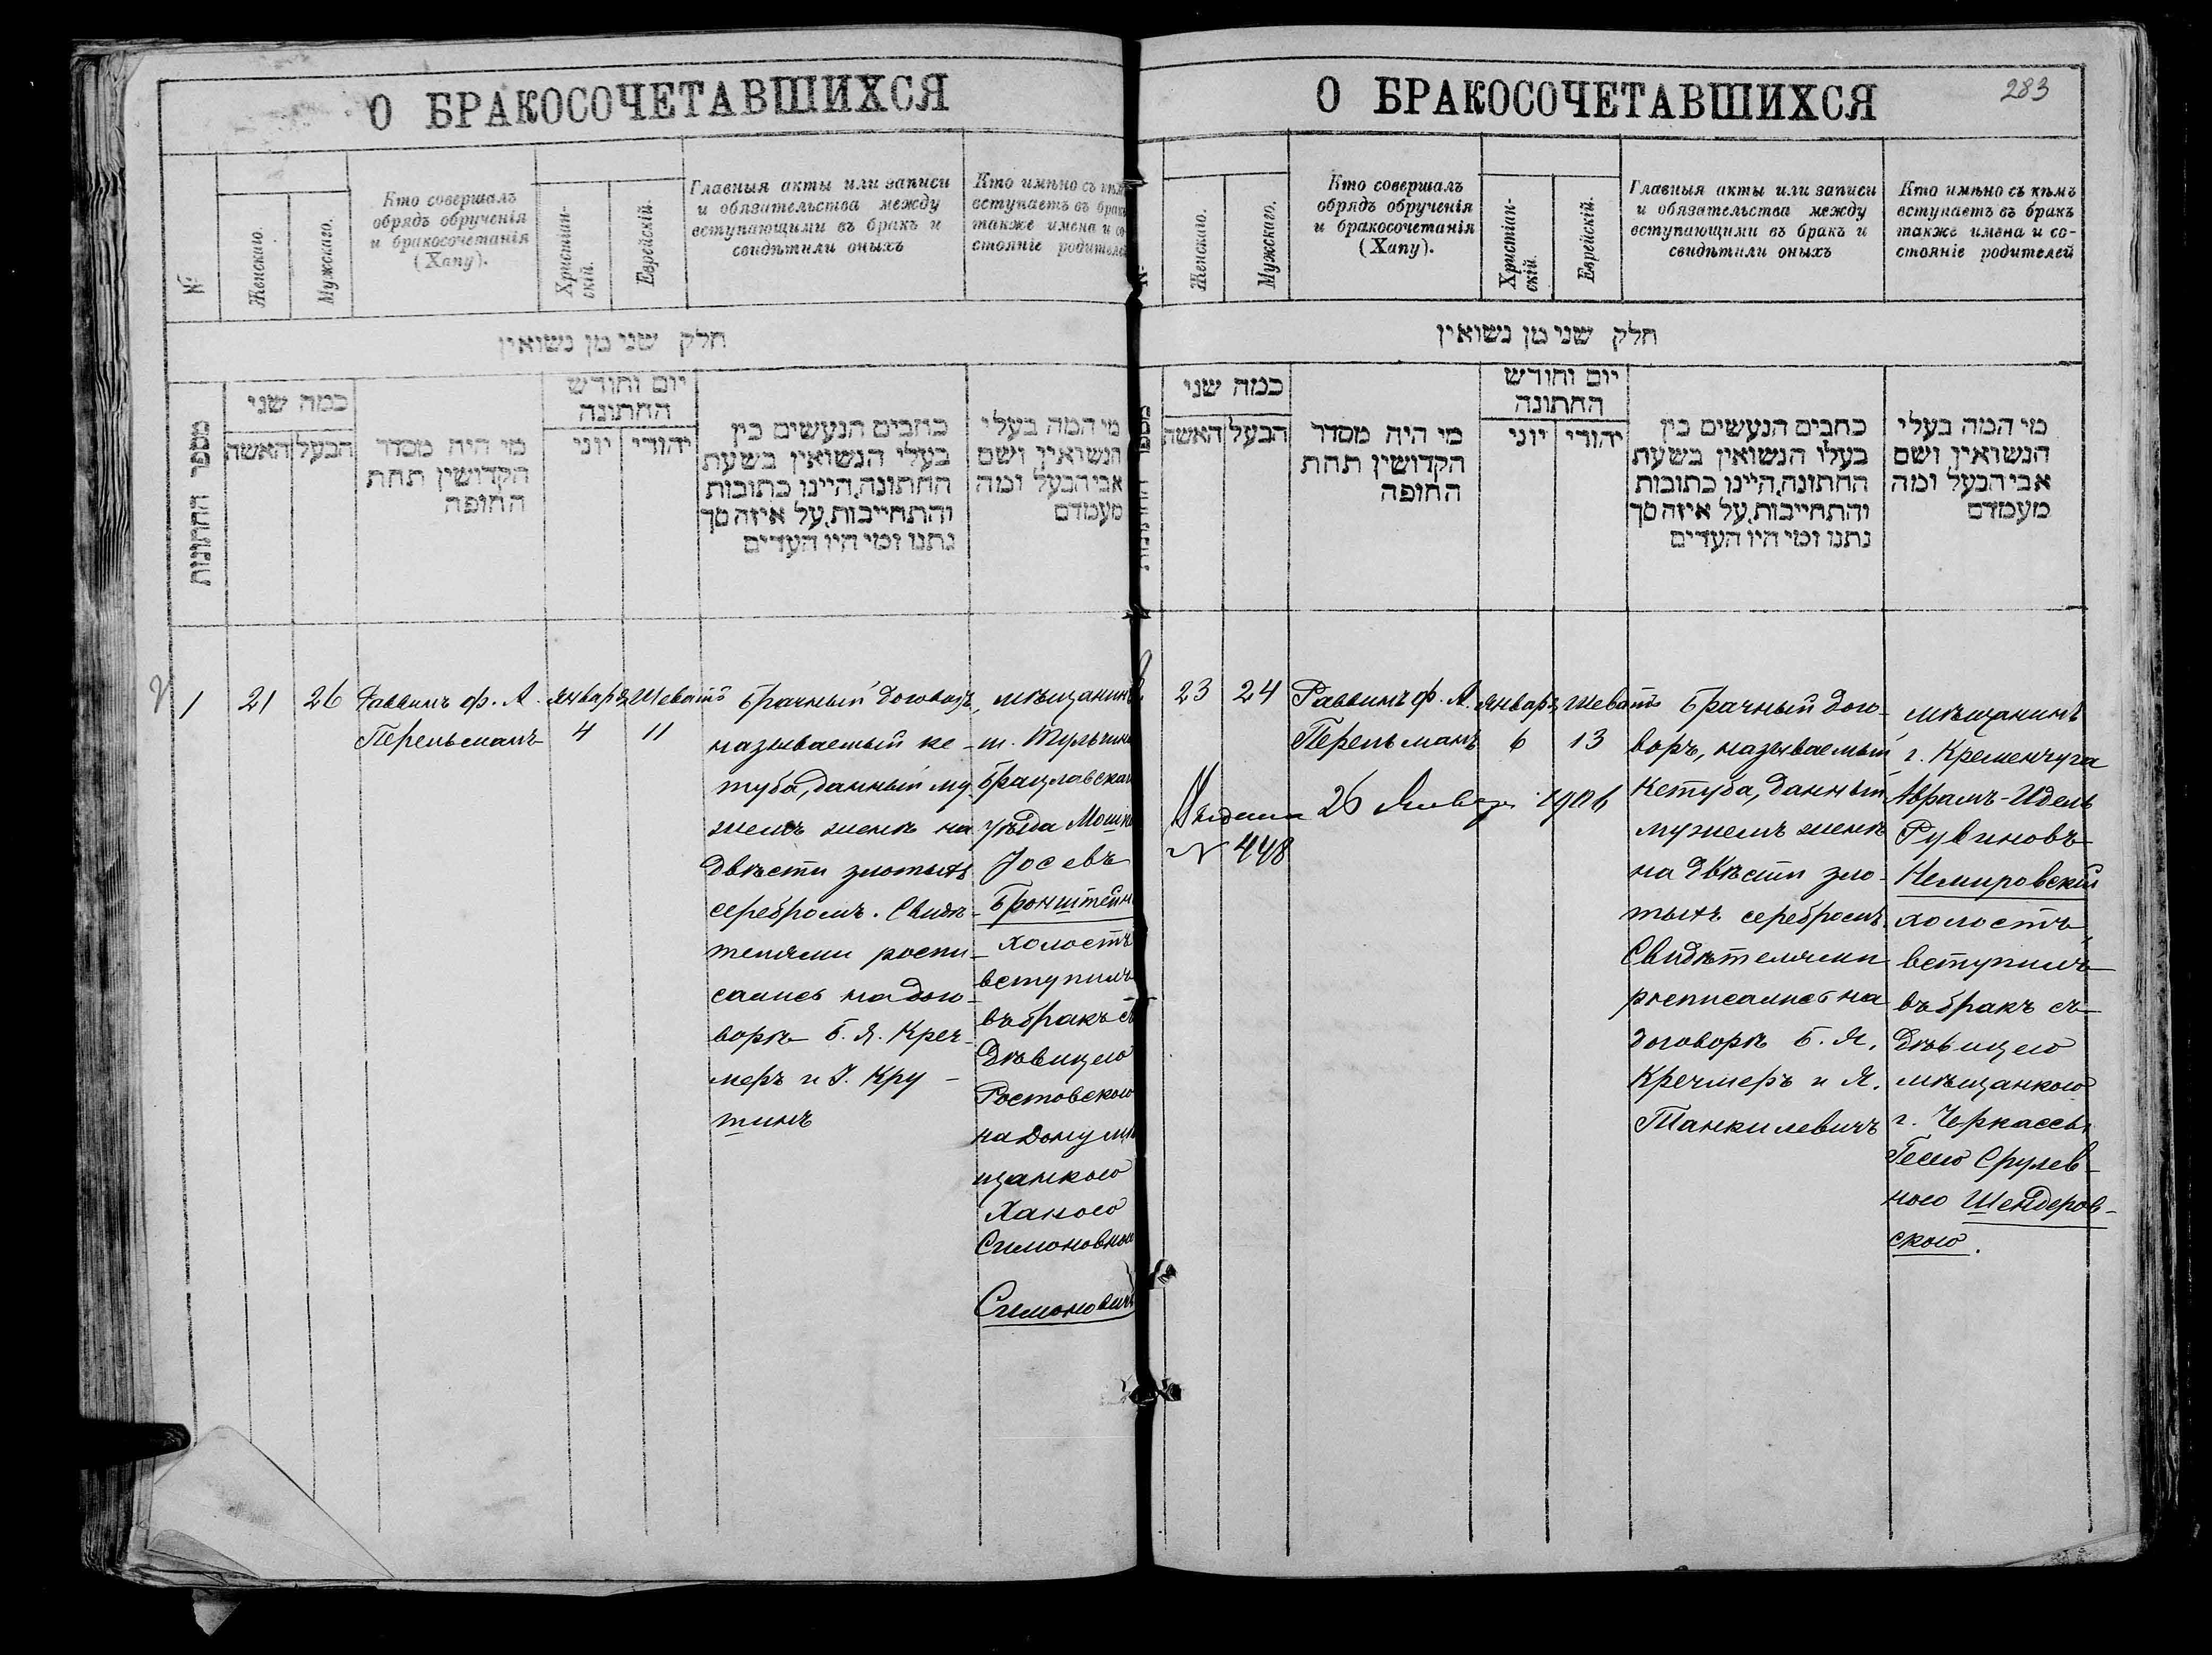 О БРАКОСОЧЕТАВШИХСЯ
№
Женскаго.
Мужскаго.
Кто совершалъ
обрядъ обрученія
и бракосочетанія
(Хапу).
Христіан-
скій.
Еврейскій.
Главныя акты или записи
и обязательства между
вступающими въ бракъ и
свидѣтили оныхъ
Кто имѣно съ кѣмъ
вступаетъ въ бракъ
также имена и со-
стояніе родителей
חלק שני מן נשואין
מספר החתונות
כמה שני
האשה
הבעל
מי היה מסדר
הקדושין תחת
החופה
יום וחודש
החתונה
יוני
יהודי
כתבים הנעשים בין
בעלי הנשואין בשעת
החתונה,היינו כתובות
והתחייבות,על איזה סך
נתנו ומי היו העדים
מי המה בעלי
הנשואין ושם
אבי הבעל ומה
מעמדם
1
21
26
Раввинъ ф. А.
Перельманъ
Января
4
Шеватъ
11
Брачный договоръ,
называемый ке-
туба, данный му-
жемъ женѣ на
двѣсти злотыхъ
серебромъ. Свидѣ-
телями роспи-
сались на дого-
ворѣ Б. Я. Креч-
меръ и І. Кру-
тинъ
мѣщанинъ
м. Тульчина
Брацлавскаго
уѣзда Мошко
Іосевъ
Бронштейнъ
холостъ
вступилъ
въ бракъ съ
дѣвицею
Ростовскою
на Дону мѣ
щанкою
Ханою
Симоновною
Симоновичъ
О БРАКОСОЧЕТАВШИХСЯ
283
Женскаго.
Мужскаго.
Кто совершалъ
обрядъ обрученія
и бракосочетанія
(Хапу).
Христіан-
скій.
Еврейскій.
Главныя акты или записи
и обязательства между
вступающими въ бракъ и
свидѣтили оныхъ
Кто имѣно съ кѣмъ
вступаетъ въ бракъ
также имена и со-
стояніе родителей
חלק שני מן נשואין
כמה שני
האשה
הבעל
מי היה מסדר
הקדושין תחת
החופה
יום וחודש
החתונה
יוני
יהודי
כתבים הנעשים בין
בעלי הנשואין בשעת
החתונה,היינו כתובות
והתחייבות,על איזה סך
נתנו ומי היו העדים
מי המה בעלי
הנשואין ושם
אבי הבעל ומה
מעמדם
23
24
Раввинъ ф. А.
Перельманъ
Января
6
Шеватъ
13
Выдана 26 Января 1906
№ 448
Брачный дого-
воръ, называемый
Кетуба, данный
мужемъ женѣ
на двѣсти зло-
тыхъ серебромъ.
Свидѣтелями
росписались на
договорѣ Б. Я.
Кречмеръ и Я.
Танкилевичъ
мѣщанинъ
г. Кременчуга
Аврамъ-Идель
Рувиновъ
Немировскій
холостъ,
вступилъ
въ бракъ съ
дѣвицею
мѣщанкою
г. Черкассы
Гесею Срулев-
ною Шендеров-
скою.